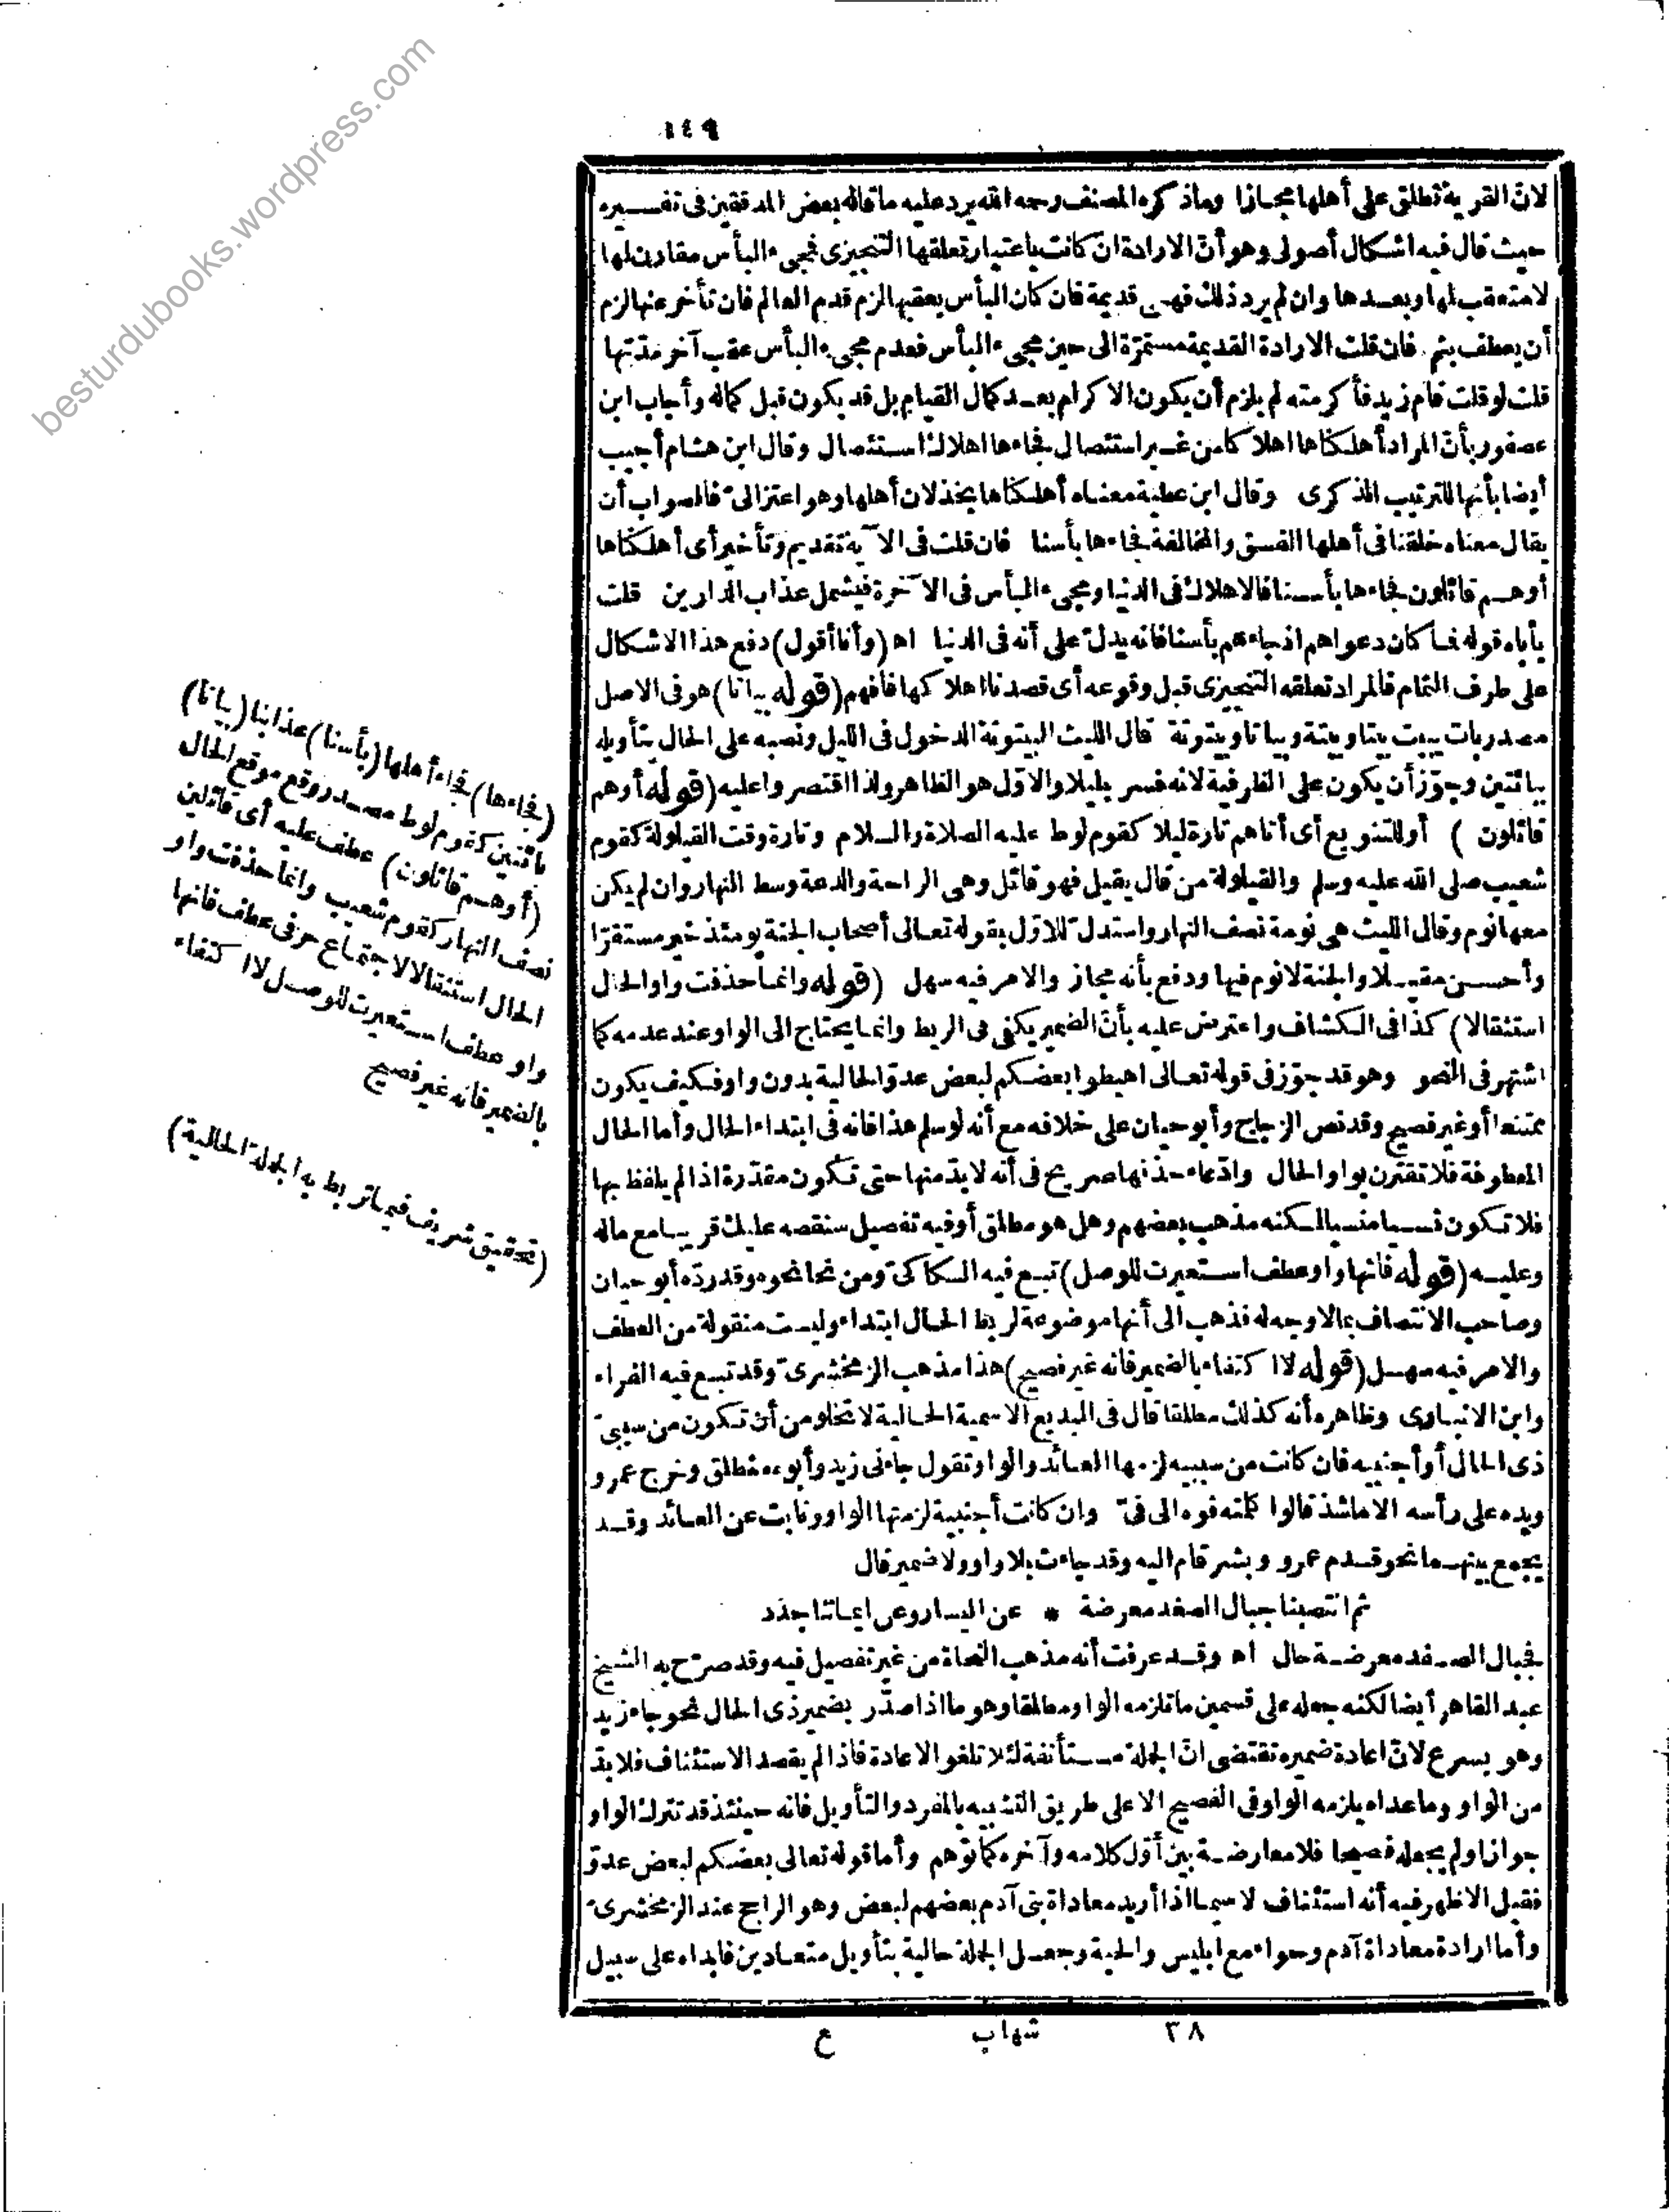 ١٤٩
لانّ القرية تطلق على أهلها مجازا وماذكره المصنف رحمه الله يرد عليه ماقاله بعض المدققين فى تفسيره
حيث قال فيه اشكال أصولى وهو أنّ الارادة ان كانت باعتبار تعلقها التنجيزى فمجىء البأس مقارن لها
لا متعقب لها وبعدها وان لم يرد ذلك فهى قديمة فان كان البأس يعقبها لزم قدم العالم فان تأخر عنها لزم
أن يعطف بثم فان قلت الارادة القديمة مستمرّة الى حين مجىء البأس فعدم مجىء البأس عقب آخر مدّتها
قلت لو قلت قام زيد فأكرمته لم يلزم أن يكون الاكرام بعد كمال القيام بل قد يكون قبل كماله وأجاب ابن
عصفور بأنّ المراد أهلكناها اهلاكا من غير استئصال فجاءها اهلاك استئصال وقال ابن هشام أجيب
أيضا بأنها للترتيب الذكرى وقال ابن عطية معناه أهلكناها بخذلان أهلها وهو اعتزالىّ فالصواب أن
يقال معناه خلقنا فى أهلها الفسق والمخالفة فجاءها بأسنا فان قلت فى الآية تقديم وتأخير أى أهلكناها
أوهم قائلون فجاءها بأسنا فالاهلاك فى الدنيا ومجىء البأس فى الآخرة فيشمل عذاب الدارين قلت
يأباه قوله فما كان دعواهم اذ جاءهم بأسنا فانه يدلّ على أنه فى الدنيا اه (وأنا أقول) دفع هذا الاشكال
على طرف الثمام فالمراد تعلقه التنجيزى قبل وقوعه أى قصدنا اهلاكها فافهم (قوله بياتا) هو فى الاصل
مصدر بات يبيت بيتا وبيتة وبياتا وبيتوتة قال الليث البيتوتة الدخول فى الليل ونصبه على الحال بتأويله
ببائتين وجوّز أن يكون على الظرفية لانه فسر بليلا والاوّل هو الظاهر ولذا اقتصروا عليه (قوله أوهم
قائلون ) أو للتنويع أى أتاهم تارة ليلا كقوم لوط عليه الصلاة والسلام وتارة وقت القيلولة كقوم
شعيب صلى الله عليه وسلم والقيلولة من قال يقيل فهو قائل وهى الراحة والدعة وسط النهار وان لم يكن
معها نوم وقال الليث هى نومة نصف النهار واستدلّ للاوّل بقوله تعالى أصحاب الجنة يومئذ خير مستقرّا
وأحسن مقيلا والجنة لا نوم فيها ودفع بأنه مجاز والامر فيه سهل (قوله وانما حذفت واو الحال
استثقالا) كذا فى الكشاف واعترض عليه بأنّ الضمير يكفى فى الربط وانما يحتاج الى الواو عند عدمه كما
اشتهر فى النحو وهو قد جوّز فى قوله تعالى اهبطوا بعضكم لبعض عدوّ الحالية بدون واو فكيف يكون
ممتنعا أو غير فصيح وقد نص الزجاج وأبو حيان على خلافه مع أنه لو سلم هذا فانه فى ابتداء الحال وأما الحال
المعطوفة فلا تقترن بواو الحال وادّعاء حذفها صريح فى أنه لا بدّ منها حتى تكون مقدّرة اذا لم يلفظ بها
فلا تكون نسيا منسيا لكنه مذهب بعضهم وهل هو مطلق أو فيه تفصيل سنقصه عليك قريبا مع ماله
وعليه (قوله فانها واو عطف استعيرت للوصل) تبع فيه السكاكىّ ومن نحا نحوه وقد ردّه أبو حيان
وصاحب الانتصاف بما لا وجه له فذهب الى أنها موضوعة لربط الحال ابتداء وليست منقولة من العطف
والامر فيه سهل (قوله لا اكتفاء بالضمير فانه غير فصيح) هذا مذهب الزمخشرىّ وقد تبع فيه الفراء
وابن الانبارى وظاهره أنه كذلك مطلقا قال فى البديع الاسمية الحالية لا تخلو من أن تكون من سببىّ
ذى الحال أو أجنبيه فان كانت من سببيه لزمها العائد والواو تقول جاءنى زيد وأبوه منطلق وخرج عمرو
ويده على رأسه الا ماشذ قالوا كلمته فوه الى فىّ وان كانت أجنبية لزمتها الواو ونابت عن العائد وقد
يجمع بينهما نحو قدم عمرو وبشر قام اليه وقد جاءت بلا واو ولا ضمير قال
ثم انتصبنا جبال الصغد معرضة * عن اليسار وعن ايماننا جدد
فجبال الصغد معرضة حال اه وقد عرفت أنه مذهب النحاة من غير تفصيل فيه وقد صرّح به الشيخ
عبد القاهر أيضا لكنه جعله على قسمين ما تلزمه الواو مطلقا وهو ما اذا صدّر بضمير ذى الحال نحو جاء زيد
وهو يسرع لانّ اعادة ضميره تقتضى انّ الجملة مستأنفة لئلا تلغو الاعادة فاذا لم يقصد الاستئناف فلا بدّ
من الواو وما عداه يلزمه الواو فى الفصيح الا على طريق التشبيه بالمفرد والتأويل فانه حينئذ قد تترك الواو
جوازا ولم يجعله فصيحا فلا معارضة بين أوّل كلامه وآخره كما توهم وأما قوله تعالى بعضكم لبعض عدوّ
فقيل الاظهر فيه أنه استئناف لا سيما اذا أريد معاداة بنى آدم بعضهم لبعض وهو الراجح عند الزمخشرىّ
وأما ارادة معاداة آدم وحواء مع ابليس والحية وجعل الجملة حالية بتأويل متعادين فابداه على سبيل
(فجاءها) فجاء أهلها (بأسنا) عذابنا (بياتا)
بائتين كقوم لوط مصدر وقع موقع الحال
(أوهم قائلون) عطف عليه أى قائلين
نصف النهار كقوم شعيب وانما حذفت واو
الحال استثقالا لاجتماع حرفى عطف فانها
واو عطف استعيرت للوصل لا اكتفاء
بالضمير فانه غير فصيح
(تحقيق شريف فيما تربط به الجملة الحالية)
٣٨ شهاب ع
besturdubooks.wordpress.com